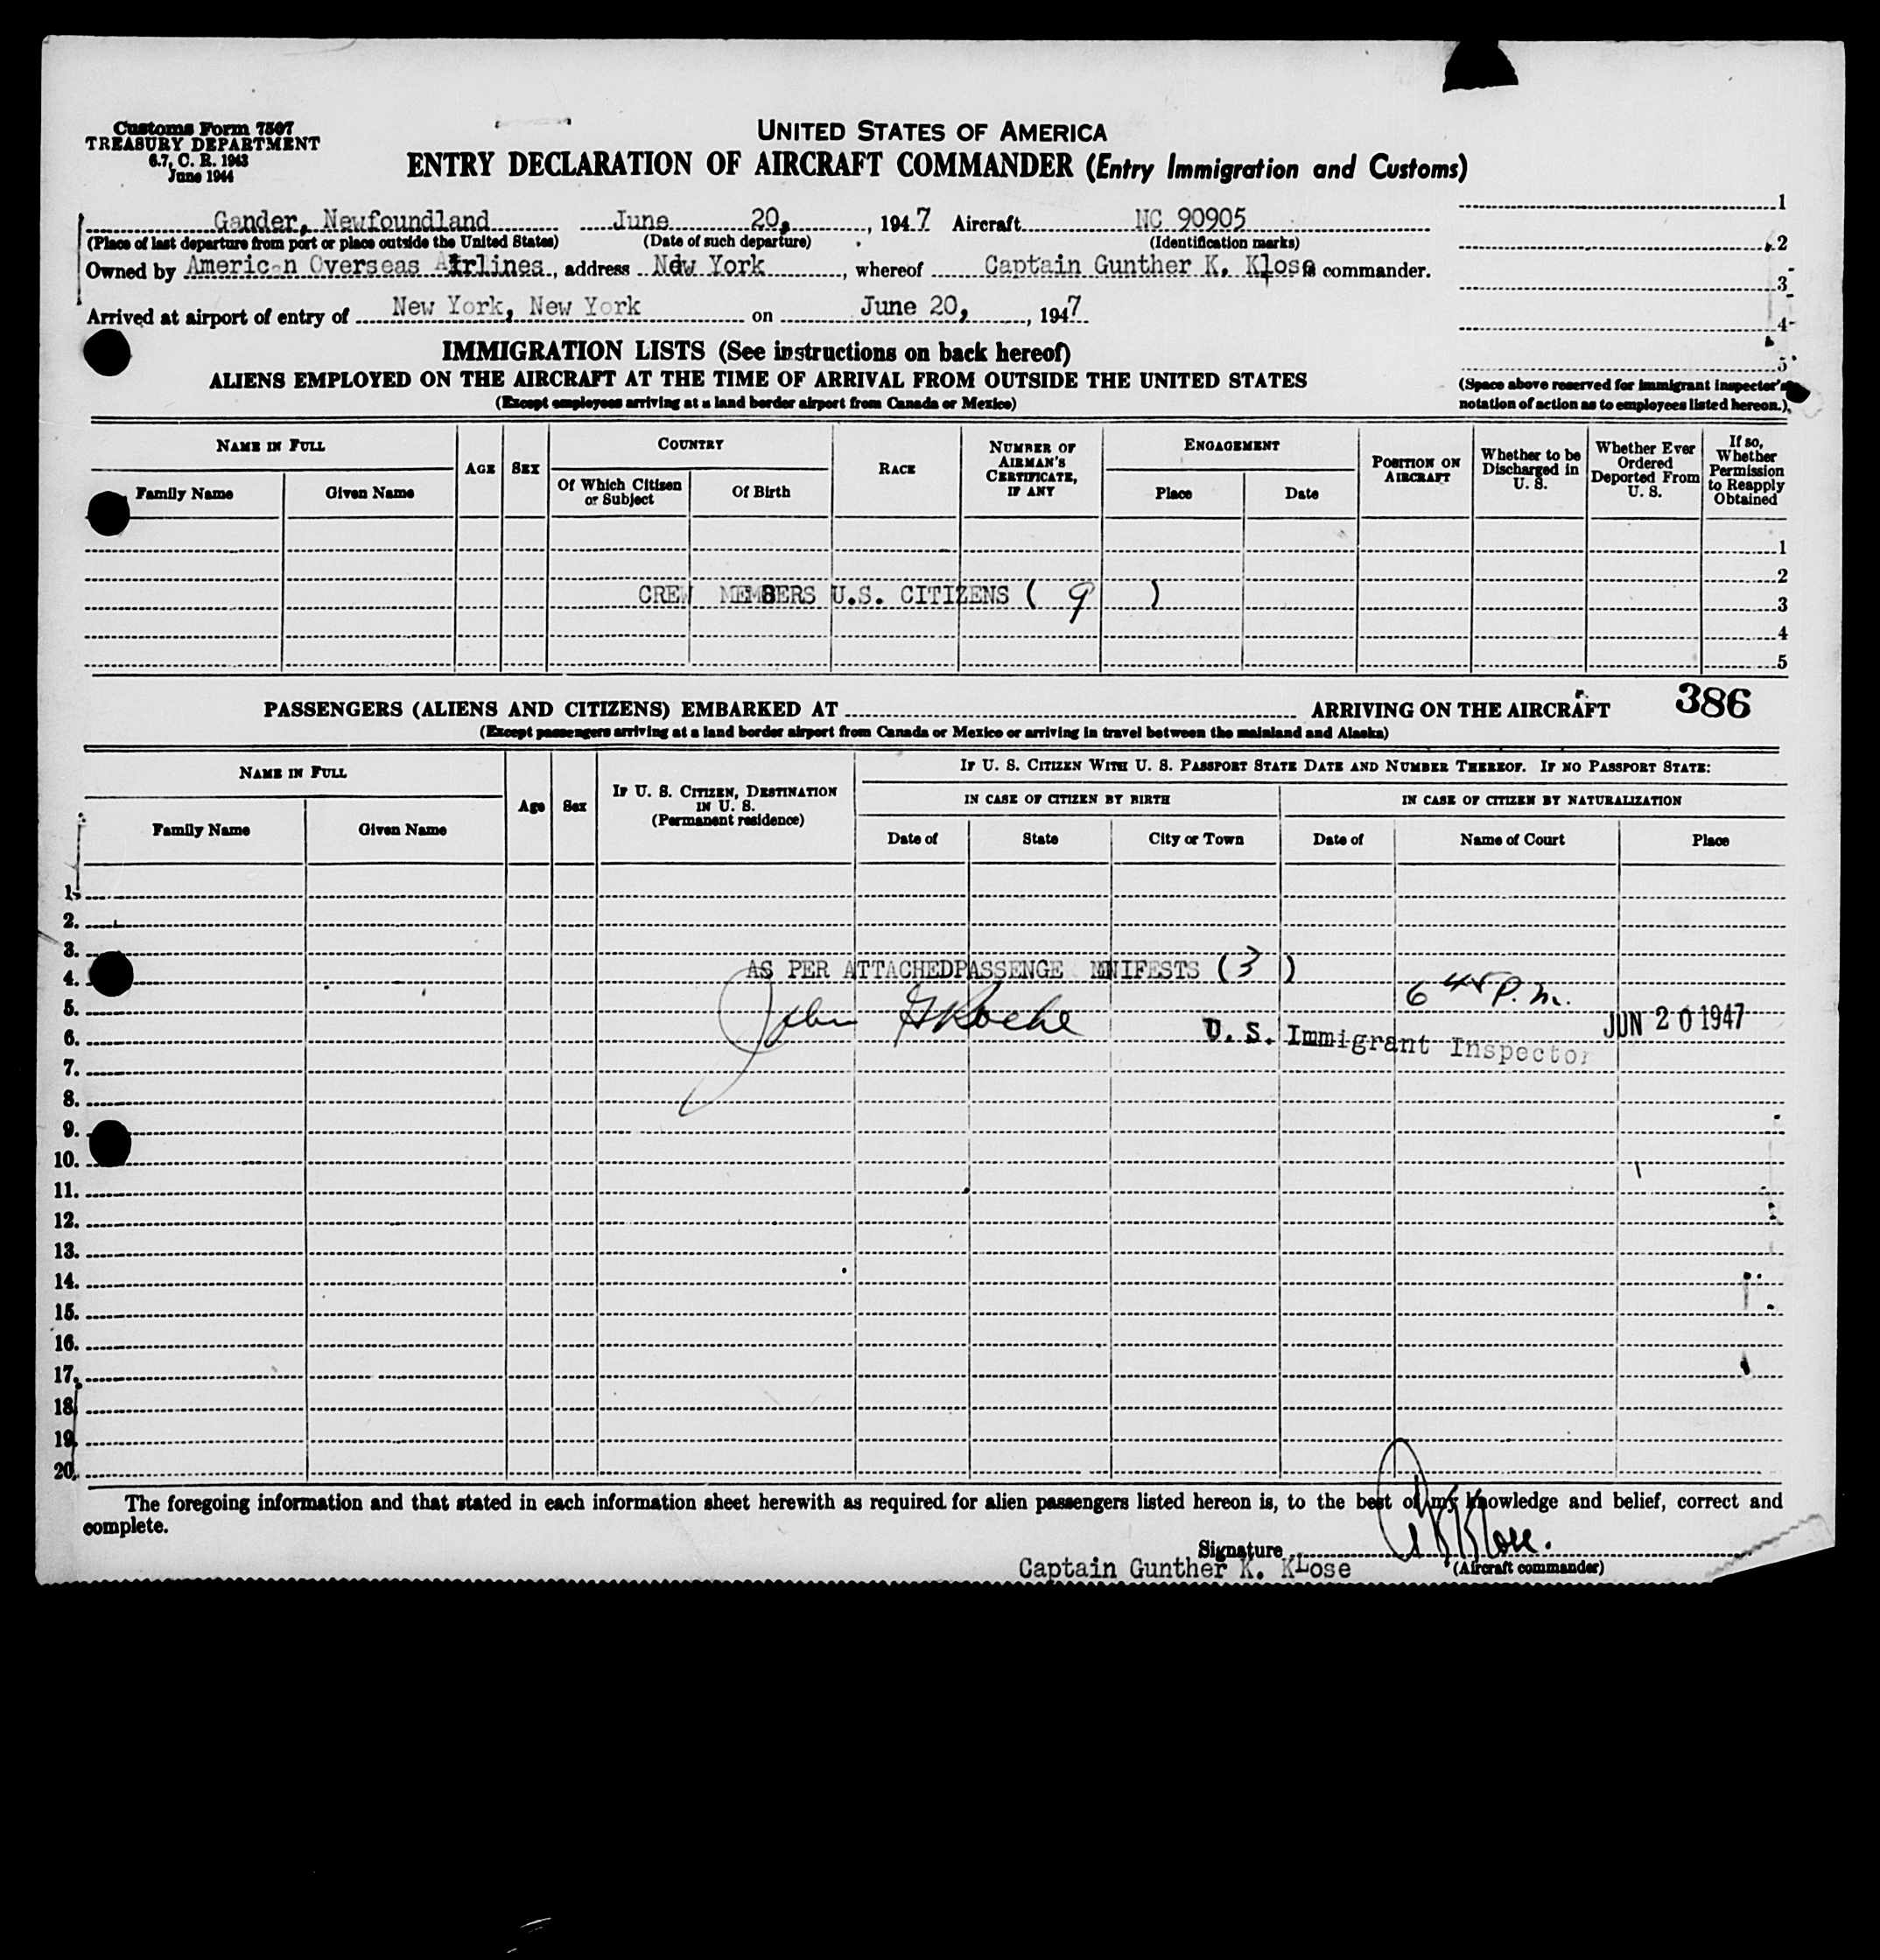 Customs Form 7507
TREASURY DEPARTMENT
6.7, C. R. 1943
June 1944
UNITED STATES OF AMERICA
ENTRY DECLARATION OF AIRCRAFT COMMANDER (Entry Immigration and Customs)
Gander, Newfoundland June 20, , 1947 Aircraft NC 90905
(Place of last departure from port or place outside the United States) (Date of such departure) (Identification marks)
Owned by American Overseas Airlines, address New York, whereof Captain Gunther K. Klose commander.
Arrived at airport of entry of New York, New York on June 20, , 1947
1
2
3
4
5
(Space above reserved for immigrant inspector's
notation of action as to employees listed hereon.)
IMMIGRATION LISTS (See instructions on back hereof)
ALIENS EMPLOYED ON THE AIRCRAFT AT THE TIME OF ARRIVAL FROM OUTSIDE THE UNITED STATES
(Except employees arriving at a land border airport from Canada or Mexico)
NAME IN FULL
Family Name
Given Name
AGE
SEX
COUNTRY
Of Which Citizen
or Subject
Of Birth
RACE
NUMBER OF
AIRMAN'S
CERTIFICATE,
IF ANY
ENGAGEMENT
Place
Date
POSITION ON
AIRCRAFT
Whether to be
Discharged in
U. S.
Whether Ever
Ordered
Deported From
U. S.
If so,
Whether
Permission
to Reapply
Obtained
1
2
CREW MEMBERS U.S. CITIZENS ( 9 )
3
4
5
386
PASSENGERS (ALIENS AND CITIZENS) EMBARKED AT ARRIVING ON THE AIRCRAFT
(Except passengers arriving at a land border airport from Canada or Mexico or arriving in travel between the mainland and Alaska)
NAME IN FULL
Family Name
Given Name
Age
Sex
IF U. S. CITIZEN, DESTINATION
IN U. S.
(Permanent residence)
IF U. S. CITIZEN WITH U. S. PASSPORT STATE DATE AND NUMBER THEREOF. IF NO PASSPORT STATE:
IN CASE OF CITIZEN BY BIRTH
IN CASE OF CITIZEN BY NATURALIZATION
Date of
State
City or Town
Date of
Name of Court
Place
1.
2.
3.
AS PER ATTACHEDPASSENGE MNIFESTS (3)
4.
6 45 P.m.
5.
John G Roche
JUN 20 1947
U. S. Immigrant Inspector
6.
7.
8.
9.
10.
11.
12.
13.
14.
15.
16.
17.
18.
19.
20.
The foregoing information and that stated in each information sheet herewith as required for alien passengers listed hereon is, to the best of my knowledge and belief, correct and
complete.
Signature G K Klose.
Captain Gunther K. KLose (Aircraft commander)